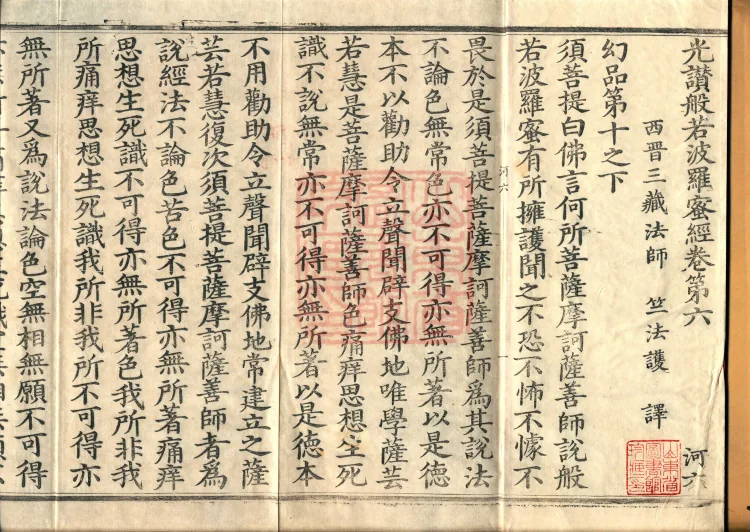 光讃般若波羅蜜經卷第六　河六
西晋三藏法師　竺法護　譯
幻品第十之下
須菩提白佛言何所菩薩摩訶薩善師說般
若波羅蜜有所擁護聞之不恐不怖不懅不
河六
畏於是須菩提菩薩摩訶薩善師爲其說法
不論色無常色亦不可得亦無所著以是德
本不以勸助令立聲聞辟支佛地唯學薩芸
若慧是菩薩摩訶薩善師色痛痒思想生死
識不說無常亦不可得亦無所著以是德本
不用勸助令立聲聞辟支佛地常建立之薩
芸若慧復次須菩提菩薩摩訶薩善師者爲
說經法不論色苦色不可得亦無所著痛痒
思想生死識不可得亦無所著色我所非我
所痛痒思想生死識我所非我所不可得亦
無所著又爲說法論色空無相無願不可得